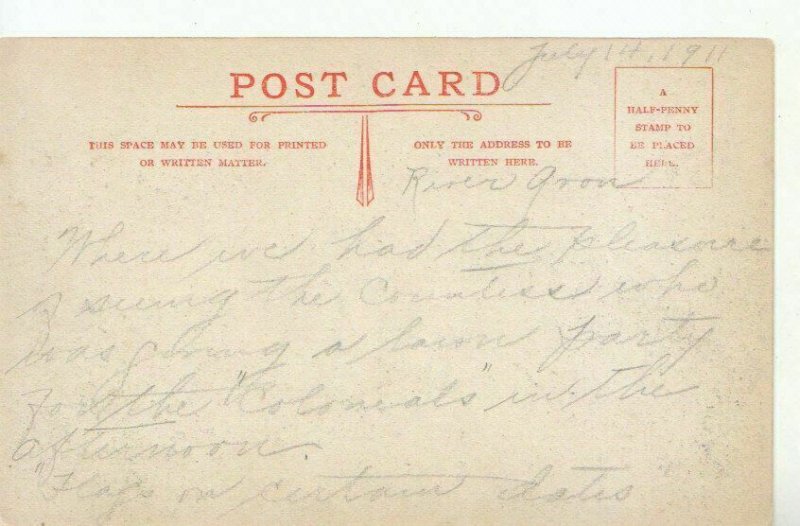 July 14, 1911
POST CARD
A
HALF-PENNY
STAMP TO
BE PLACED
HERE.
THIS SPACE MAY BE USED FOR PRINTED
OR WRITTEN MATTER.
ONLY THE ADDRESS TO BE
WRITTEN HERE.
River Avon
Where we had the pleasure
of seeing the Countess who
was giving a lawn party
for the "Colonials" in the
afternoon.
"Flags on certain dates"